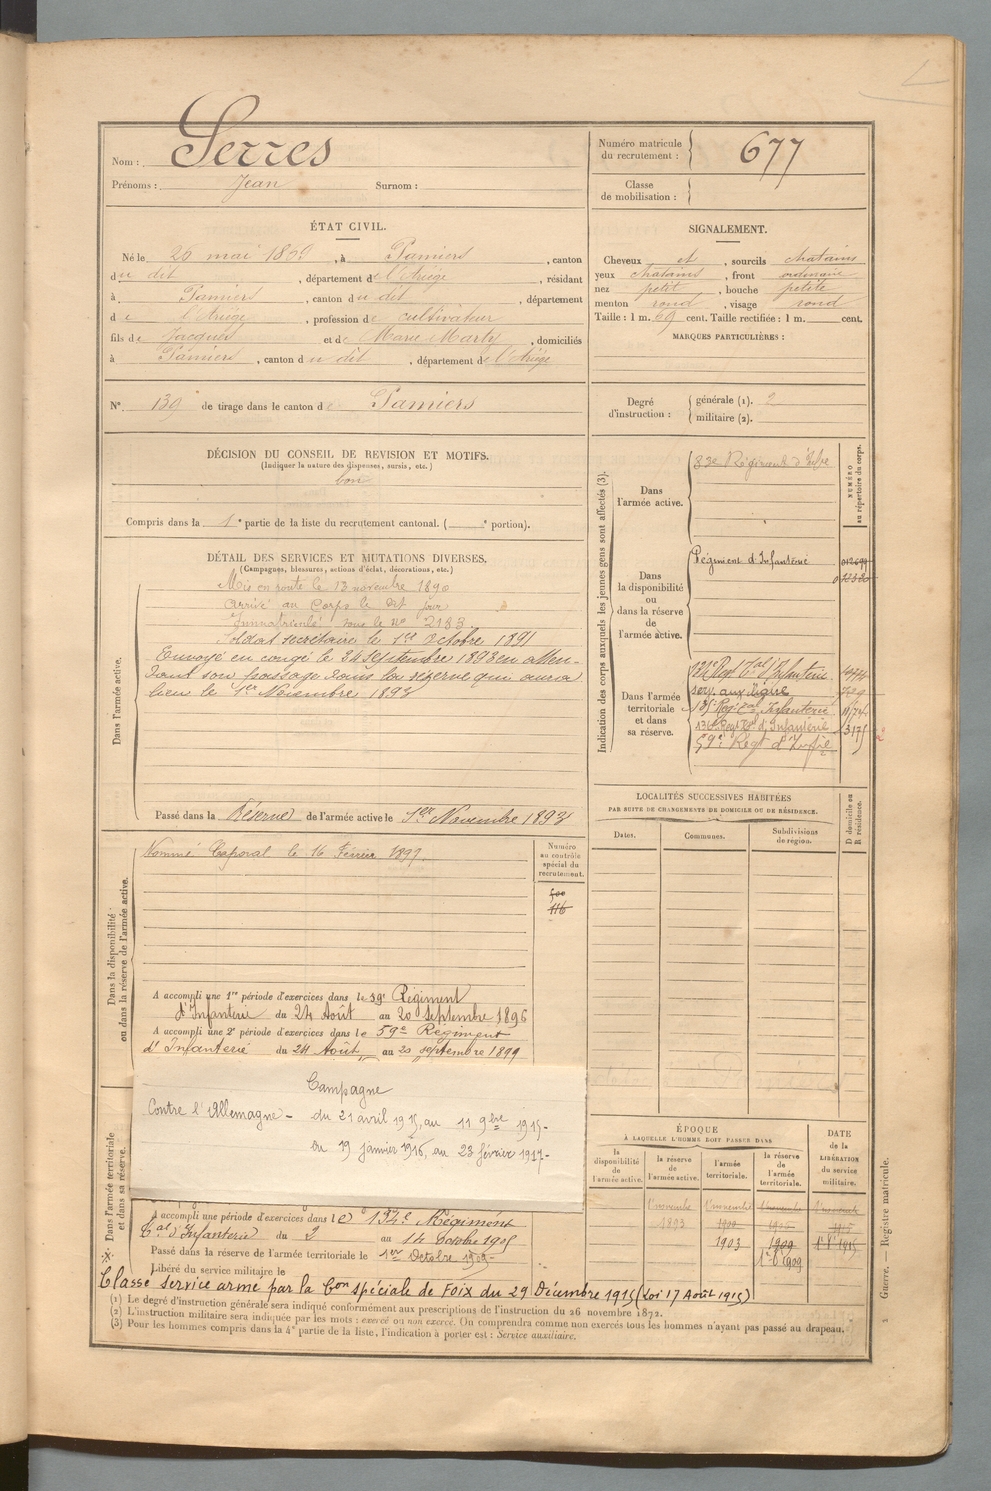 Nom : Serres
Prénoms : Jean Surnom :
Numéro matricule du recrutement : 677
Classe de mobilisation :
ÉTAT CIVIL.
Né le 26 mai 1869, à Pamiers, canton
du dit, département de l'Ariège, résidant
à Pamiers, canton du dit, département
de l'Ariège, profession de cultivateur
fils de Jacques et de Marie Marty, domiciliés
à Pamiers, canton du dit, département de l'Ariège
N° 139 de tirage dans le canton de Pamiers
SIGNALEMENT.
Cheveux et, sourcils chatains
yeux chatains, front ordinaire
nez petit, bouche petite
menton rond, visage rond
Taille : 1 m. 69 cent. Taille rectifiée : 1 m. cent.
MARQUES PARTICULIÈRES :
Degré d'instruction : générale (1). 2
militaire (2).
DÉCISION DU CONSEIL DE REVISION ET MOTIFS.
(Indiquer la nature des dispenses, sursis, etc.)
bon
Compris dans la 1e partie de la liste du recrutement cantonal. ( e portion).
DÉTAIL DES SERVICES ET MUTATIONS DIVERSES.
(Campagnes, blessures, actions d'éclat, décorations, etc.)
Dans l'armée active.
Mis en route le 13 novembre 1890
arrivé au Corps le dit jour
Immatriculé sous le n° 2183
Soldat secrétaire le 1er Octobre 1891
Envoyé en congé le 24 septembre 1893 en atten-
dant son passage dans la réserve qui aura
lieu le 1er Novembre 1893
Passé dans la Réserve de l'armée active le 1er Novembre 1893
Indication des corps auxquels les jeunes gens sont affectés (3).
NUMÉRO au répertoire du corps.
Dans l'armée active.
83e Régiment d'Infie
Dans la disponibilité ou dans la réserve de l'armée active.
Régiment d'Infanterie
Dans l'armée territoriale et dans sa réserve.
Regt Tal d'Infanterie
serv. aux ligne
135e Regt Tal Infanterie
136e Regt Tal d'Infanterie
59e Regt d'Infie
LOCALITÉS SUCCESSIVES HABITÉES
PAR SUITE DE CHANGEMENTS DE DOMICILE OU DE RÉSIDENCE.
Dates. Communes. Subdivisions de région.
D domicile ou R résidence.
Dans la disponibilité ou dans la réserve de l'armée active.
Nommé Caporal le 16 Février 1897.
Numéro au contrôle spécial du recrutement.
116
A accompli une 1re période d'exercices dans le 59e Régiment
d'Infanterie du 24 Août au 20 septembre 1896
A accompli une 2e période d'exercices dans le 59e Régiment
d'Infanterie du 24 Août au 20 septembre 1899
Campagne
Contre l'Allemagne - du 21 avril 1915, au 11 9bre 1915-
du 19 janvier 1916, au 23 février 1917-
Dans l'armée territoriale et dans sa réserve.
A accompli une période d'exercices dans le 134e Régiment
Tal d'Infanterie du 2 au 14 Octobre 1905
Passé dans la réserve de l'armée territoriale le 1er Octobre 1909-
Libéré du service militaire le
Classé service armé par la Con spéciale de Foix du 29 Décembre 1915 (Loi 17 Août 1915)
ÉPOQUE
À LAQUELLE L'HOMME DOIT PASSER DANS
la disponibilité de l'armée active. la réserve de l'armée active. l'armée territoriale. la réserve de l'armée territoriale.
DATE de la LIBÉRATION du service militaire.
1er novembre 1893
1er novembre 1900
1903
1909
1er 8 1909
1er 8 1915
Guerre. — Registre matricule.
(1) Le degré d'instruction générale sera indiqué conformément aux prescriptions de l'instruction du 26 novembre 1872.
(2) L'instruction militaire sera indiquée par les mots : exercé ou non exercé. On comprendra comme non exercés tous les hommes n'ayant pas passé au drapeau.
(3) Pour les hommes compris dans la 4e partie de la liste, l'indication à porter est : Service auxiliaire.